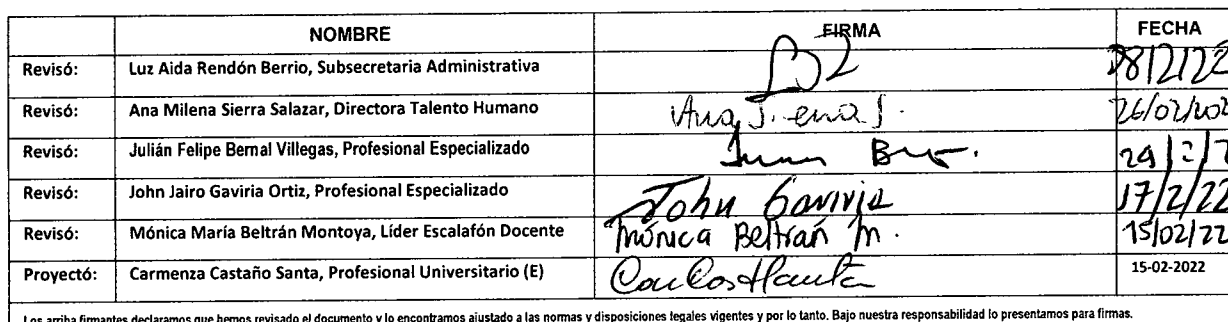 NOMBRE FIRMA FECHA
Revisó: Luz Aida Rendón Berrio, Subsecretaria Administrativa 28/2/22
Revisó: Ana Milena Sierra Salazar, Directora Talento Humano 26/02/202
Revisó: Julián Felipe Bernal Villegas, Profesional Especializado
Revisó: John Jairo Gaviria Ortiz, Profesional Especializado John Gaviria 17/2/22
Revisó: Mónica María Beltrán Montoya, Líder Escalafón Docente Mónica Beltrán M. 15/02/22
Proyectó: Carmenza Castaño Santa, Profesional Universitario (E) 15-02-2022
Los arriba firmantes declaramos que hemos revisado el documento y lo encontramos ajustado a las normas y disposiciones legales vigentes y por lo tanto. Bajo nuestra responsabilidad lo presentamos para firmas.